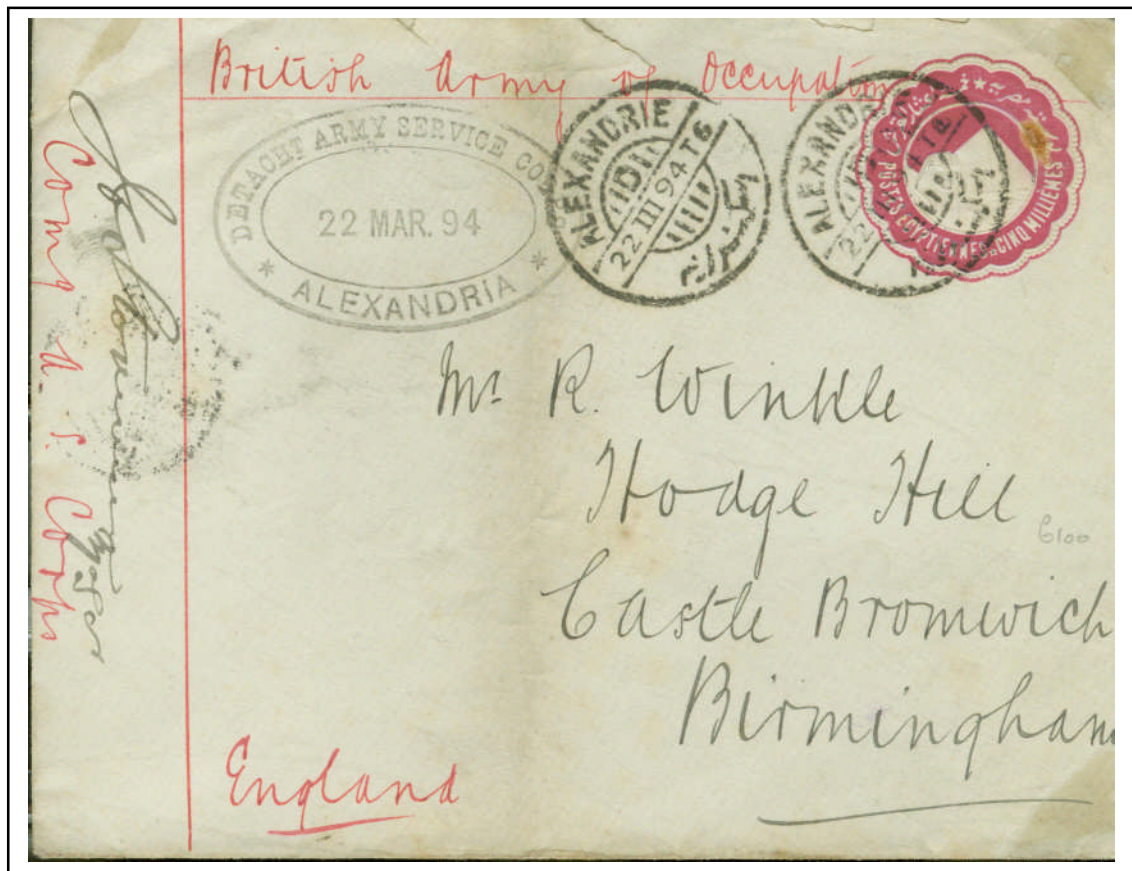 British Army of Occupation
DETACHT ARMY SERVICE CORPS
22 MAR. 94
* ALEXANDRIA *
ALEXANDRIE
22 III 94 T6
اسكندرية
ALEXANDRIE
POSTES EGYPTIENNES CINQ MILLIÈMES
Mr R. Winkle
Hodge Hill
Castle Bromwich
Birmingham
England
Comg A. S. Corps